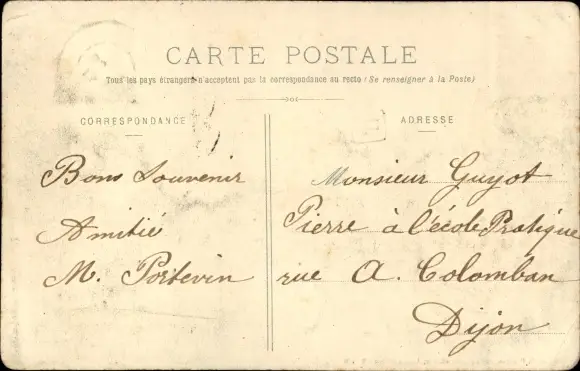 CARTE POSTALE
Tous les pays étrangers n'acceptent pas la correspondance au recto (Se renseigner à la Poste)
CORRESPONDANCE
Bons Souvenir
Amitié
M. Portevin
ADRESSE
Monsieur Guyot
Pierre à l'école Pratique
rue A. Colomban
Dijon